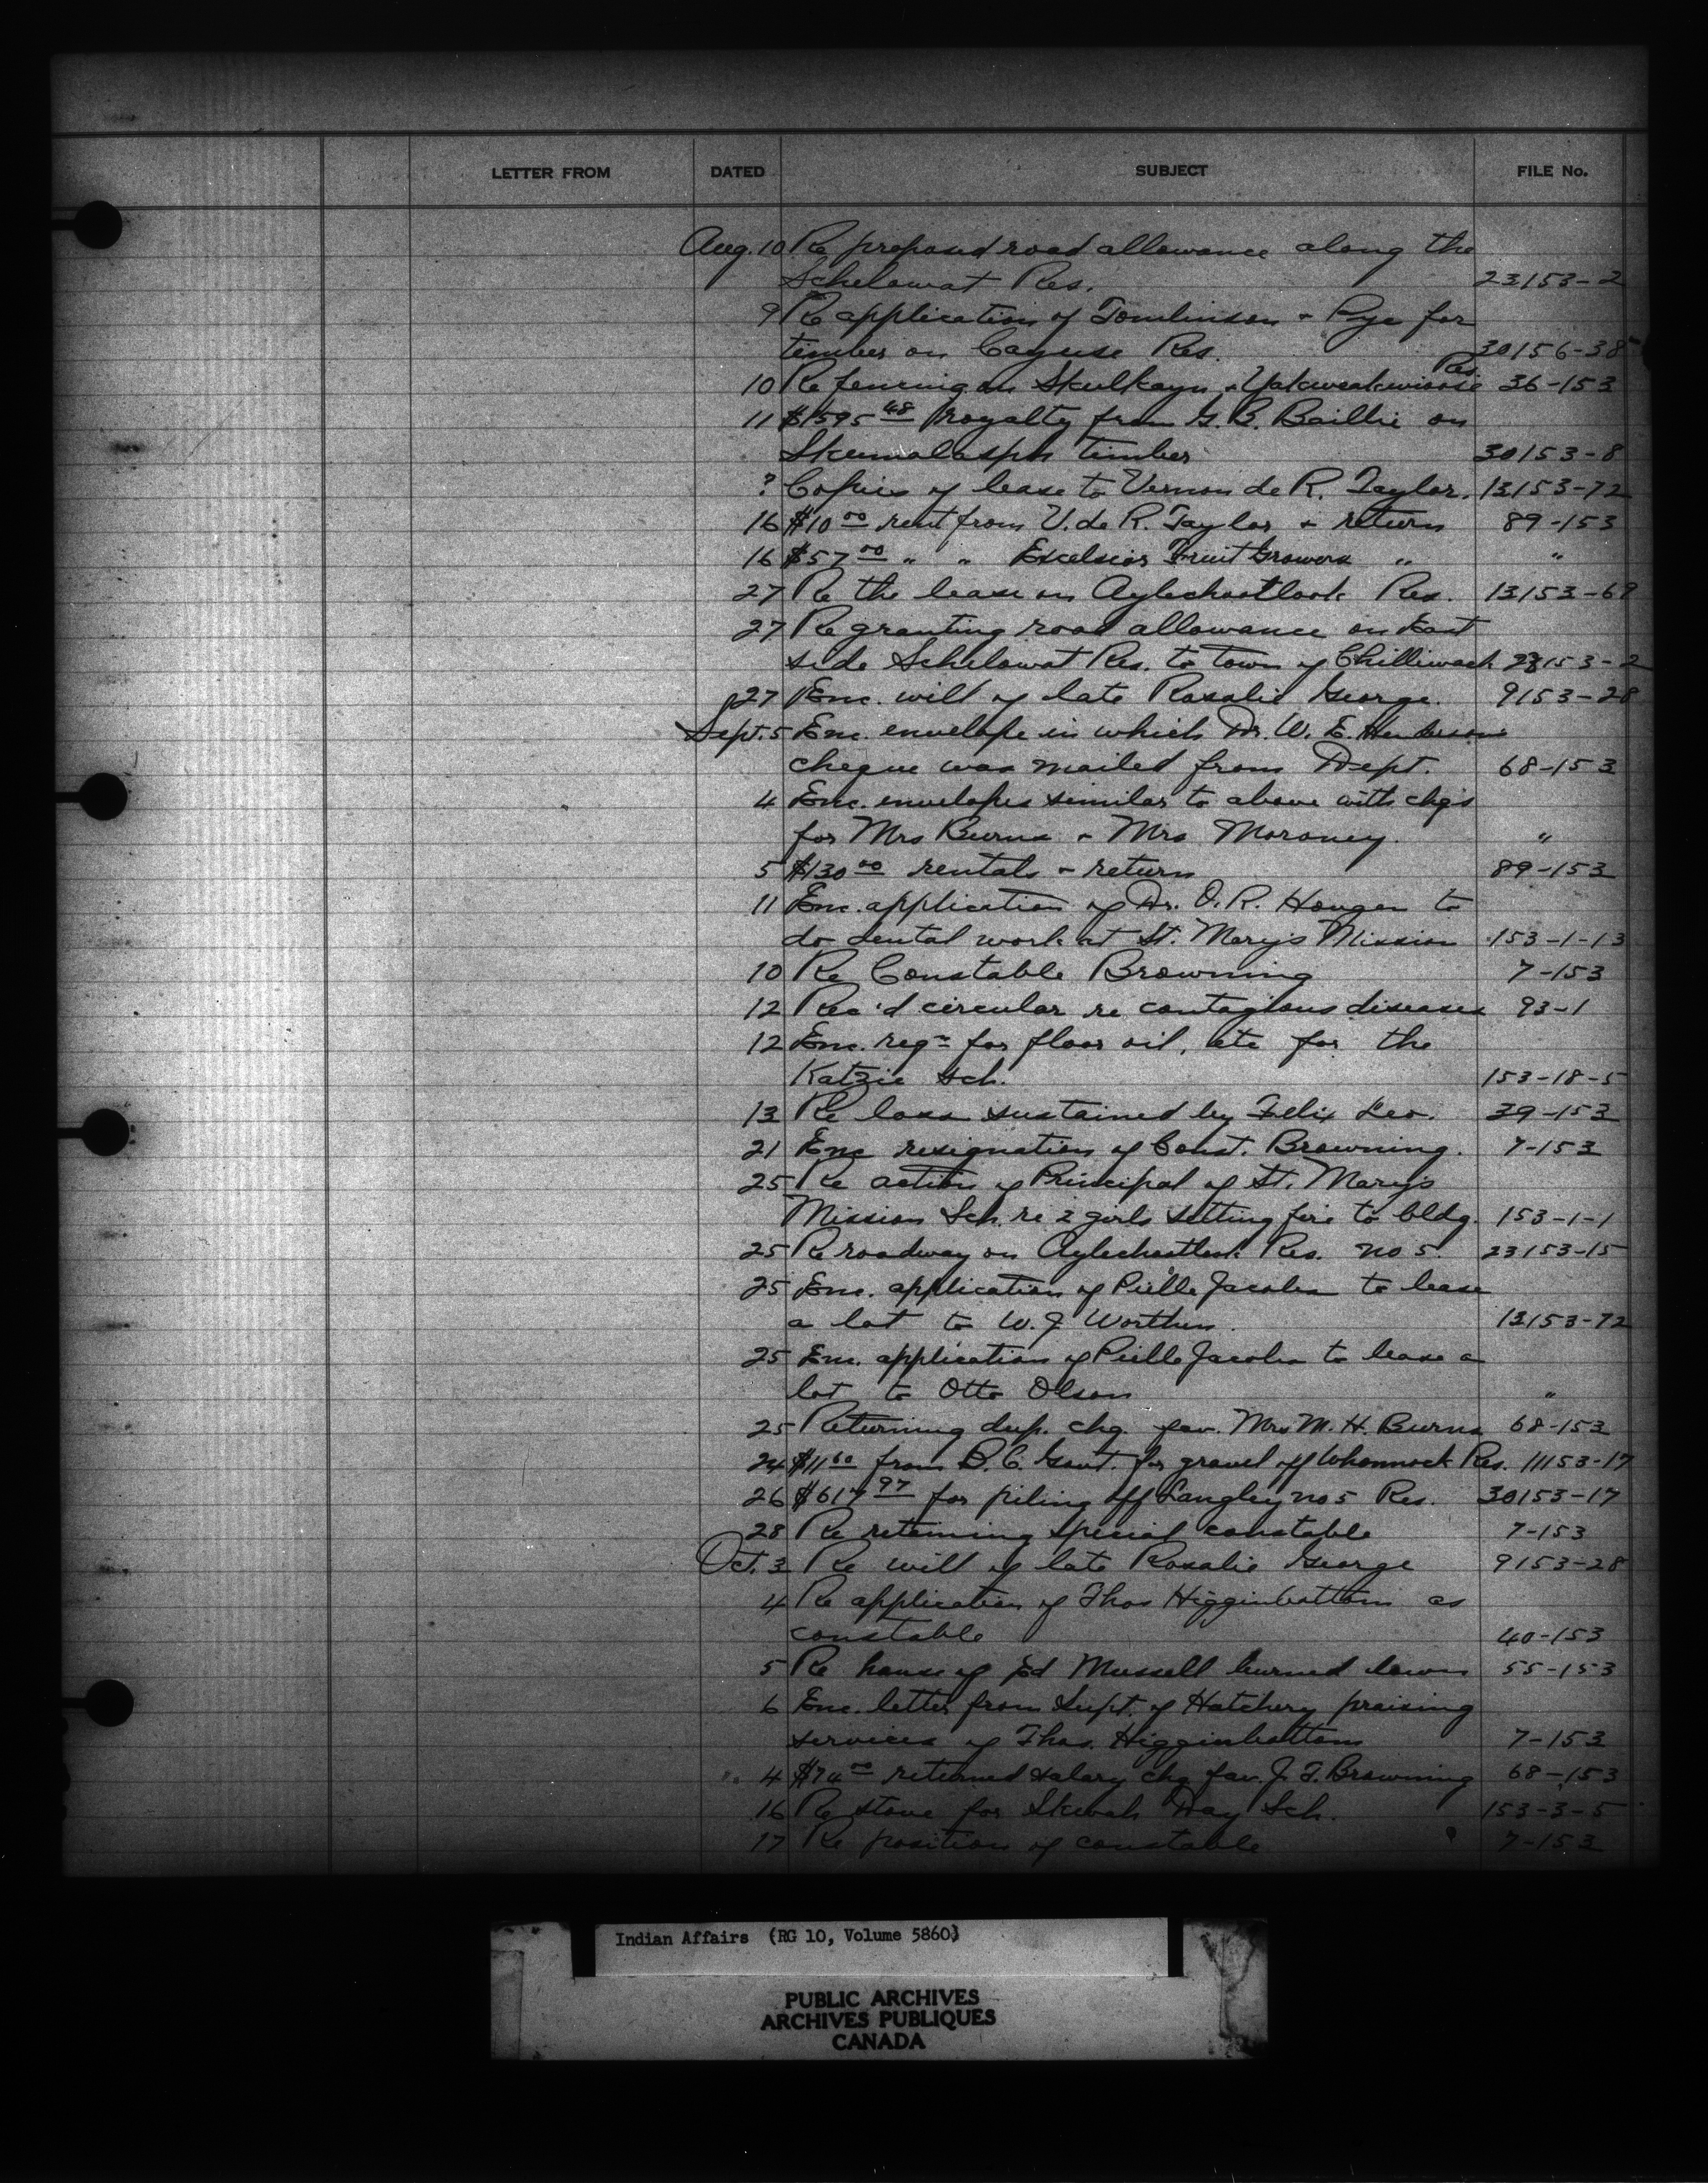 LETTER FROM DATED SUBJECT FILE No.
Aug. 10 Re proposed road allowance along the
Schelowat Res. 23153-2
9 Re application of Tomlinson + Pye for
timber on Cayuse Res. 30156-38
Res.
10 Re fencing on Skulkayn + Yakweakwioose 36-153
11 $1595 48 royalty from G. B. Baillie on
Skumalasph timber 30153-8
? Copies of lease to Vernon de R. Taylor. 13153-72
16 $10 00 rent from V. de R. Taylor + return 89-153
16 $57 00 " " Excelsior Fruit Growers " "
27 Re the lease on Aylechootlook Res. 13153-69
27 Re granting road allowance on East
side Schelowat Res. to town of Chilliwack 23153-2
27 Enc. will of late Rosalie George. 9153-28
Sept. 5 Enc. envelope in which Dr. W. E. Henderson's
cheque was mailed from Dept. 68-153
4 Enc. envelopes similar to above with chqs
for Mrs Burns + Mrs Moroney. "
5 $130 00 rentals + return 89-153
11 Enc. application of Dr. O. R. Hougen to
do dental work at St. Mary's Mission 153-1-13
10 Re Constable Browning 7-153
12 Rec'd circular re contagious diseases 93-1
12 Enc. reqn for floor oil, etc for the
Katzie Sch. 153-18-5
13 Re loss sustained by Felix Leo. 39-153
21 Enc resignation of Const. Browning. 7-153
25 Re action of Principal of St. Mary's
Mission Sch. re 2 girls setting fire to bldg. 153-1-1
25 Re roadway on Aylechootlook Res. no 5. 23153-15
25 Enc. application of Jacobs to lease
a lot to W. J. Worthen. 13153-72
25 Enc. application of Jacobs to lease a
lot to Otto Olson "
25 Returning dup. chq. fav. Mrs M. H. Burns 68-153
24 $11 60 from B. C. Govt. for gravel off Whonnock Res. 11153-17
26 $617 97 for piling off Langley no 5 Res. 30153-17
28 Re retaining special constable 7-153
Oct. 3 Re will of late Rosalie George 9153-28
4 Re application of Thos Higginbottom as
constable 40-153
5 Re house of Ed Mussell burned down 55-153
6 Enc. letter from Supt. of Hatchery praising
services of Thos. Higginbottom 7-153
4 $74 00 returned salary chq fav. J. T. Browning 68-153
16 Re stove for Skwah Day Sch. 153-3-5
17 Re position of constable 7-153
Indian Affairs (RG 10, Volume 5860)
PUBLIC ARCHIVES
ARCHIVES PUBLIQUES
CANADA